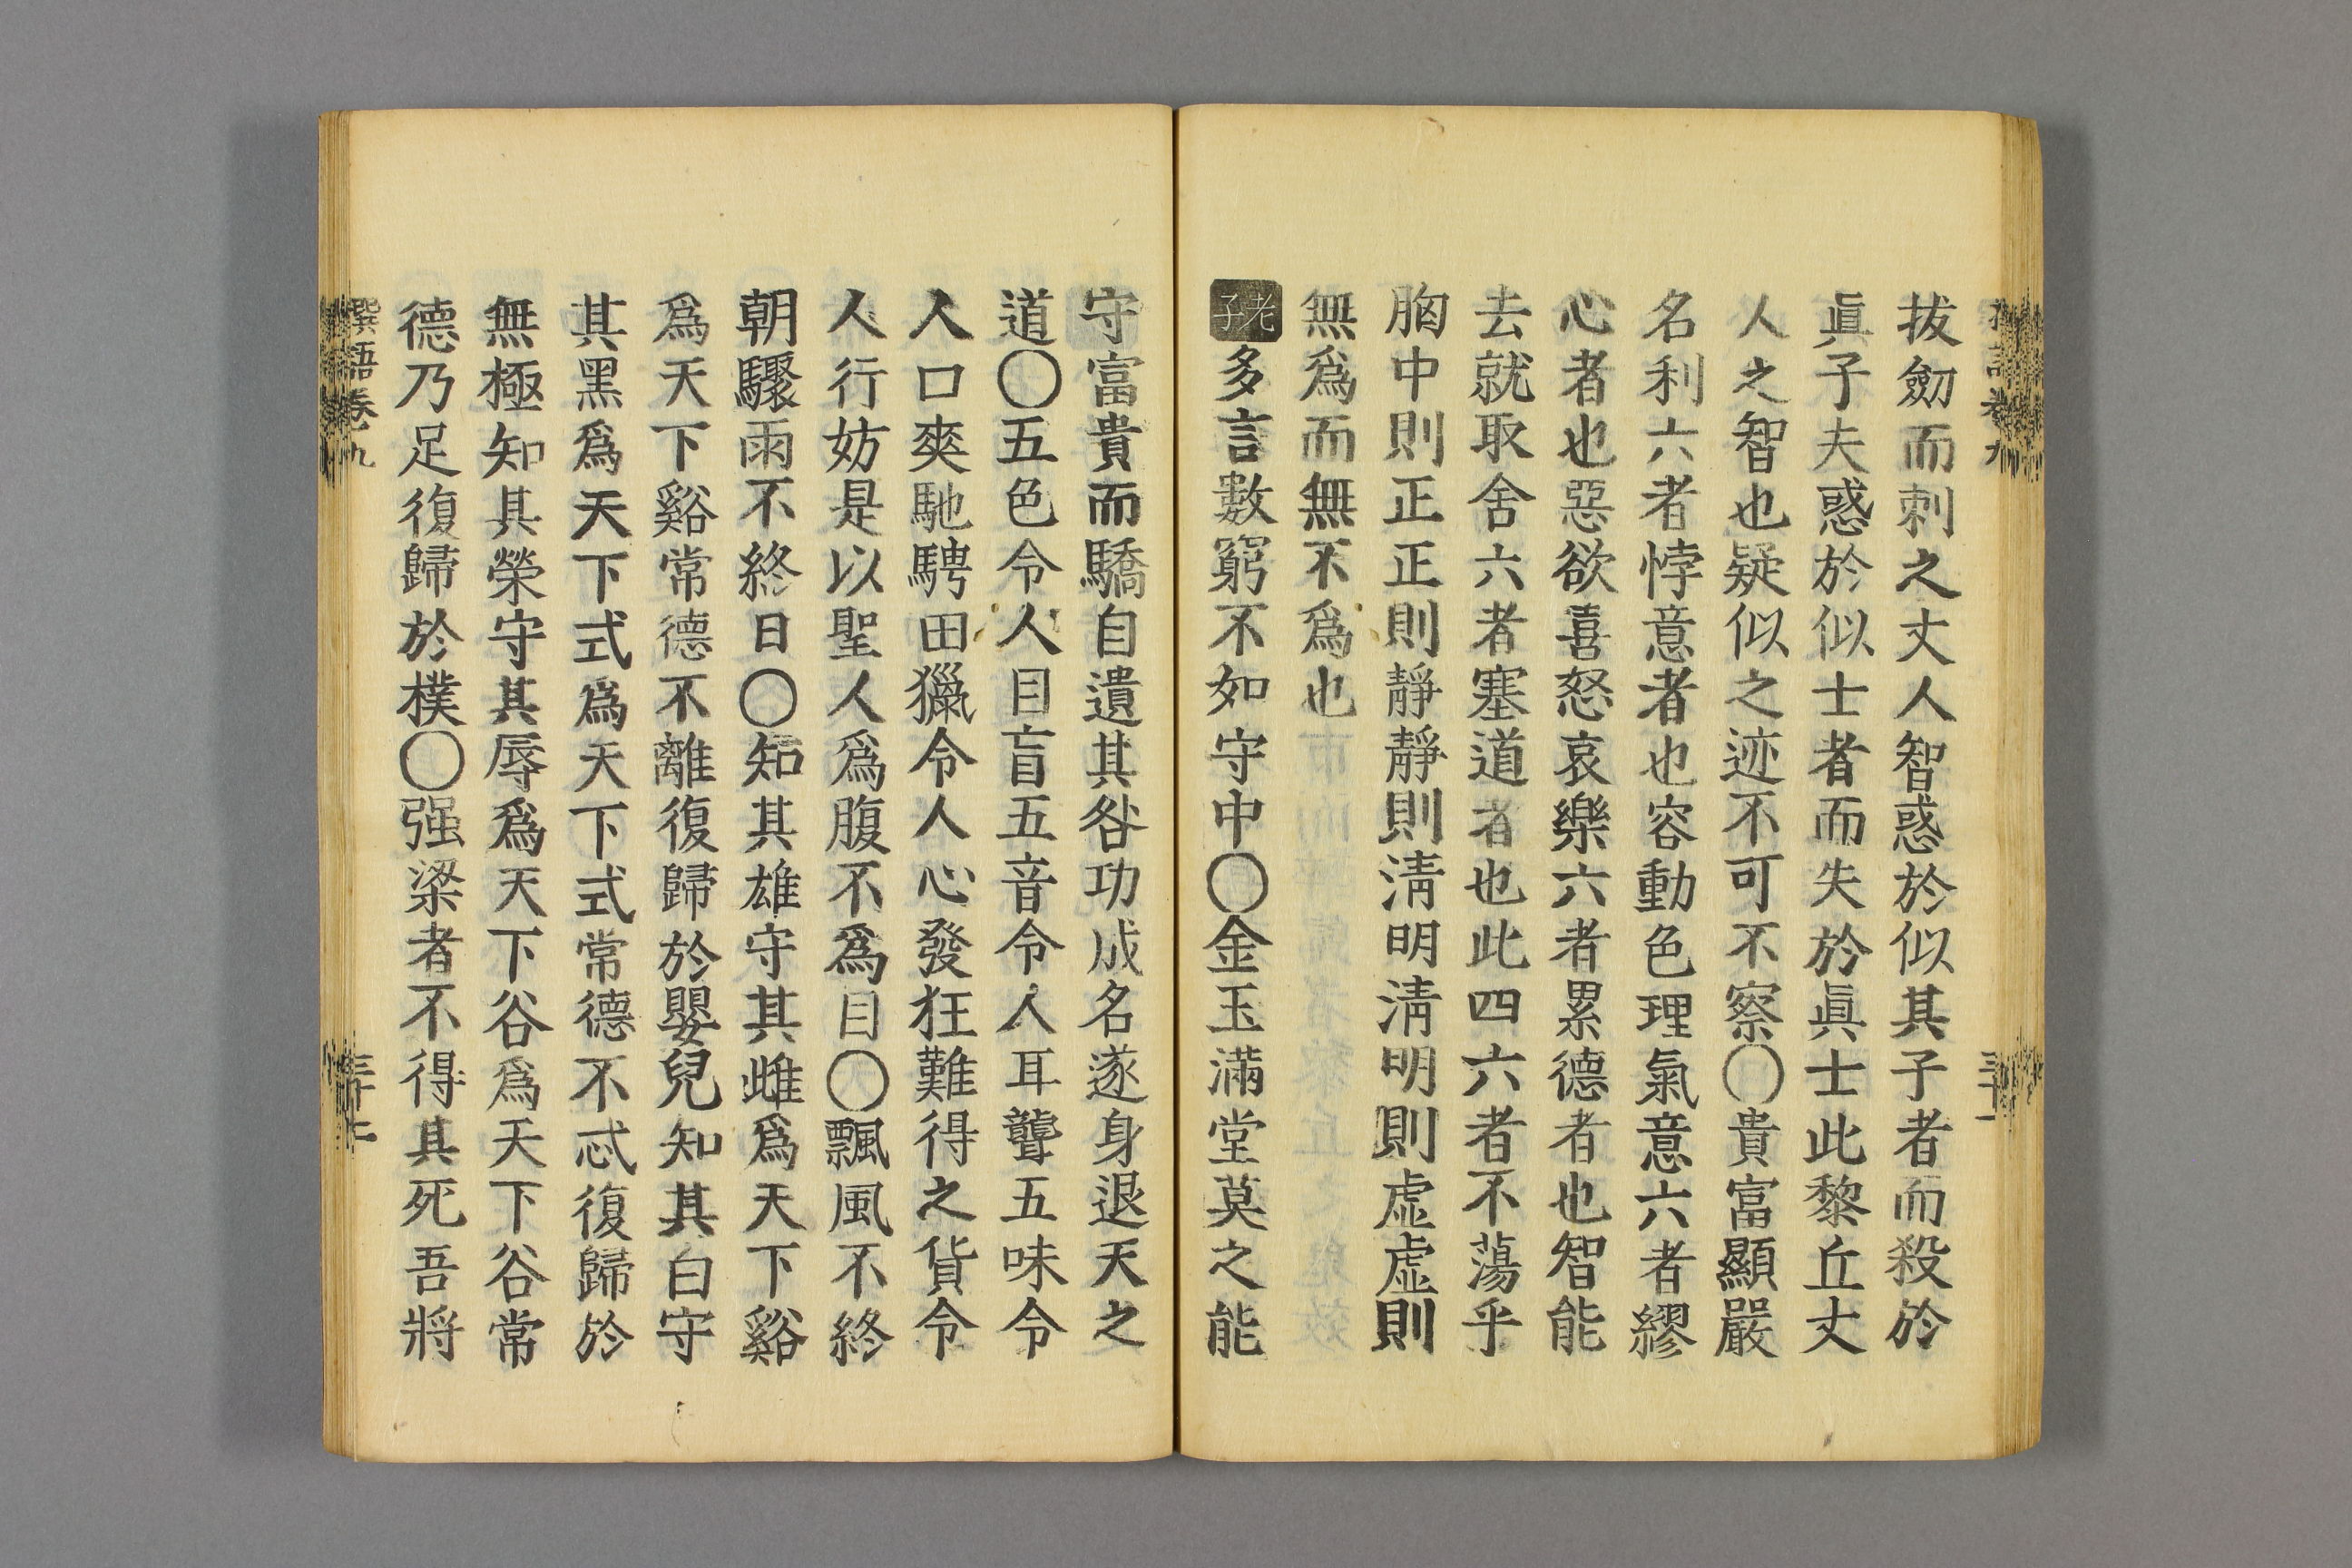 拔劒而刺之丈人智惑於似其子者而殺於
眞子夫惑於似士者而失於眞士此黎丘丈
人之智也疑似之迹不可不察〇貴富顯嚴
名利六者悖意者也容動色理氣意六者繆
心者也惡欲喜怒哀樂六者累德者也智能
去就取舍六者塞道者也此四六者不蕩乎
胸中則正正則靜靜則淸明淸明則虛虛則
無爲而無不爲也
老子 多言數窮不如守中〇金玉滿堂莫之能
守富貴而驕自遺其咎功成名遂身退天之
道〇五色令人目盲五音令人耳聾五味令
人口爽馳騁田獵令人心發狂難得之貨令
人行妨是以聖人爲腹不爲目〇飄風不終
朝驟雨不終日〇知其雄守其雌爲天下谿
爲天下谿常德不離復歸於嬰兒知其白守
其黑爲天下式爲天下式常德不忒復歸於
無極知其榮守其辱爲天下谷爲天下谷常
德乃足復歸於樸〇强梁者不得其死吾將
撰語卷九